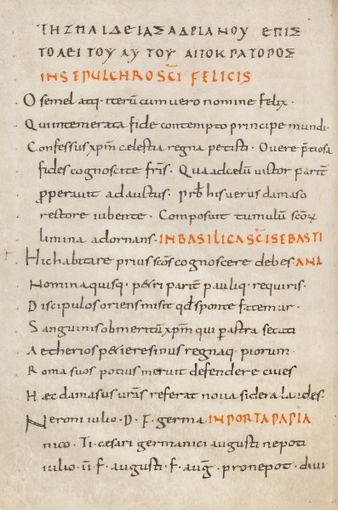 ΤΗΣ ΠΑΙΔΕΙΑΣ ΑΔΡΙΑΝΟΥ ΕΠΙΣ
ΤΟΛΕΙ ΤΟΥ ΑΥΤΟΥ ΑΥΤΟΚΡΑΤΟΡΟΣ
IN SEPULCHRO SCI FELICIS
O semel atq. iterũ cum vero nomine felix.
Qui intemerata fide contempto principe mundi
Confessus xpm cælestia regna petisti. O vere ptiosa
fides cognoscite frĩs. Qua ad cælũ victor parit
properavit adauctus. prbt his verus damaso
rectore iubente. Composuit tumulũ scõr
limina adornans. IN BASILICA SCI SEBASTI
Hic habitare prius scõs cognoscere debes. ANI
Nomina quisq. petri parit pauliq. requiris.
Discipulos oriens misit qd sponte fatemur.
Sanguinis ob meritũ xpm qui p astra secuti
Aetherios petiere sinus regnaq. piorum.
Roma suos potius meruit defendere cives
Hæc damasus vras referat nova sidera laudes.
Neroni iulio. D. F. germa IN PORTA PAPIA
nico. Ti. cæsari germanici augusti nepoti
iulio. ti. f. augusti. f. aug. pronepot. divi